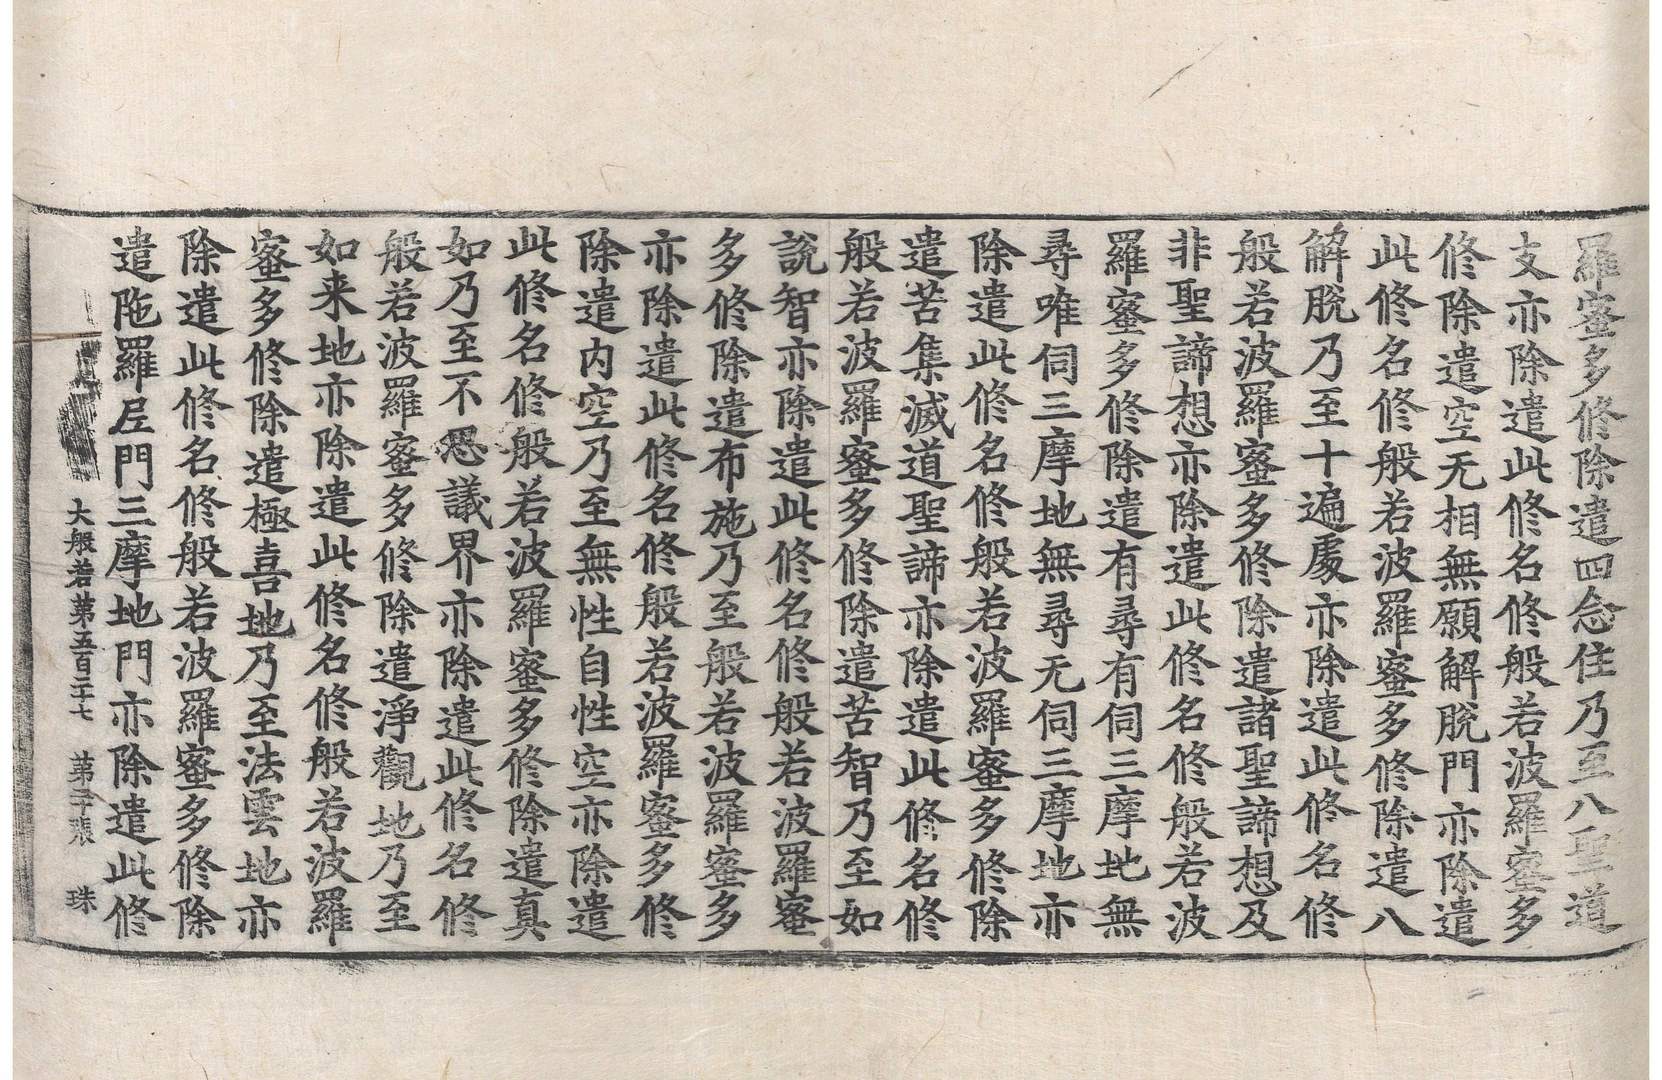 羅蜜多修除遣四念住乃至八聖道
支亦除遣此修名修般若波羅蜜多
修除遣空无相無願解脫門亦除遣
此修名修般若波羅蜜多修除遣八
解脫乃至十遍處亦除遣此修名修
般若波羅蜜多修除遣諸聖諦想及
非聖諦想亦除遣此修名修般若波
羅蜜多修除遣有尋有伺三摩地無
尋唯伺三摩地無尋无伺三摩地亦
除遣此修名修般若波羅蜜多修除
遣苦集滅道聖諦亦除遣此修名修
般若波羅蜜多修除遣苦智乃至如
說智亦除遣此修名修般若波羅蜜
多修除遣布施乃至般若波羅蜜多
亦除遣此修名修般若波羅蜜多修
除遣内空乃至無性自性空亦除遣
此修名修般若波羅蜜多修除遣真
如乃至不思議界亦除遣此修名修
般若波羅蜜多修除遣淨觀地乃至
如来地亦除遣此修名修般若波羅
蜜多修除遣極喜地乃至法雲地亦
除遣此修名修般若波羅蜜多修除
遣陁羅尼門三摩地門亦除遣此修
大般若第五百三十七 第二十張 珠